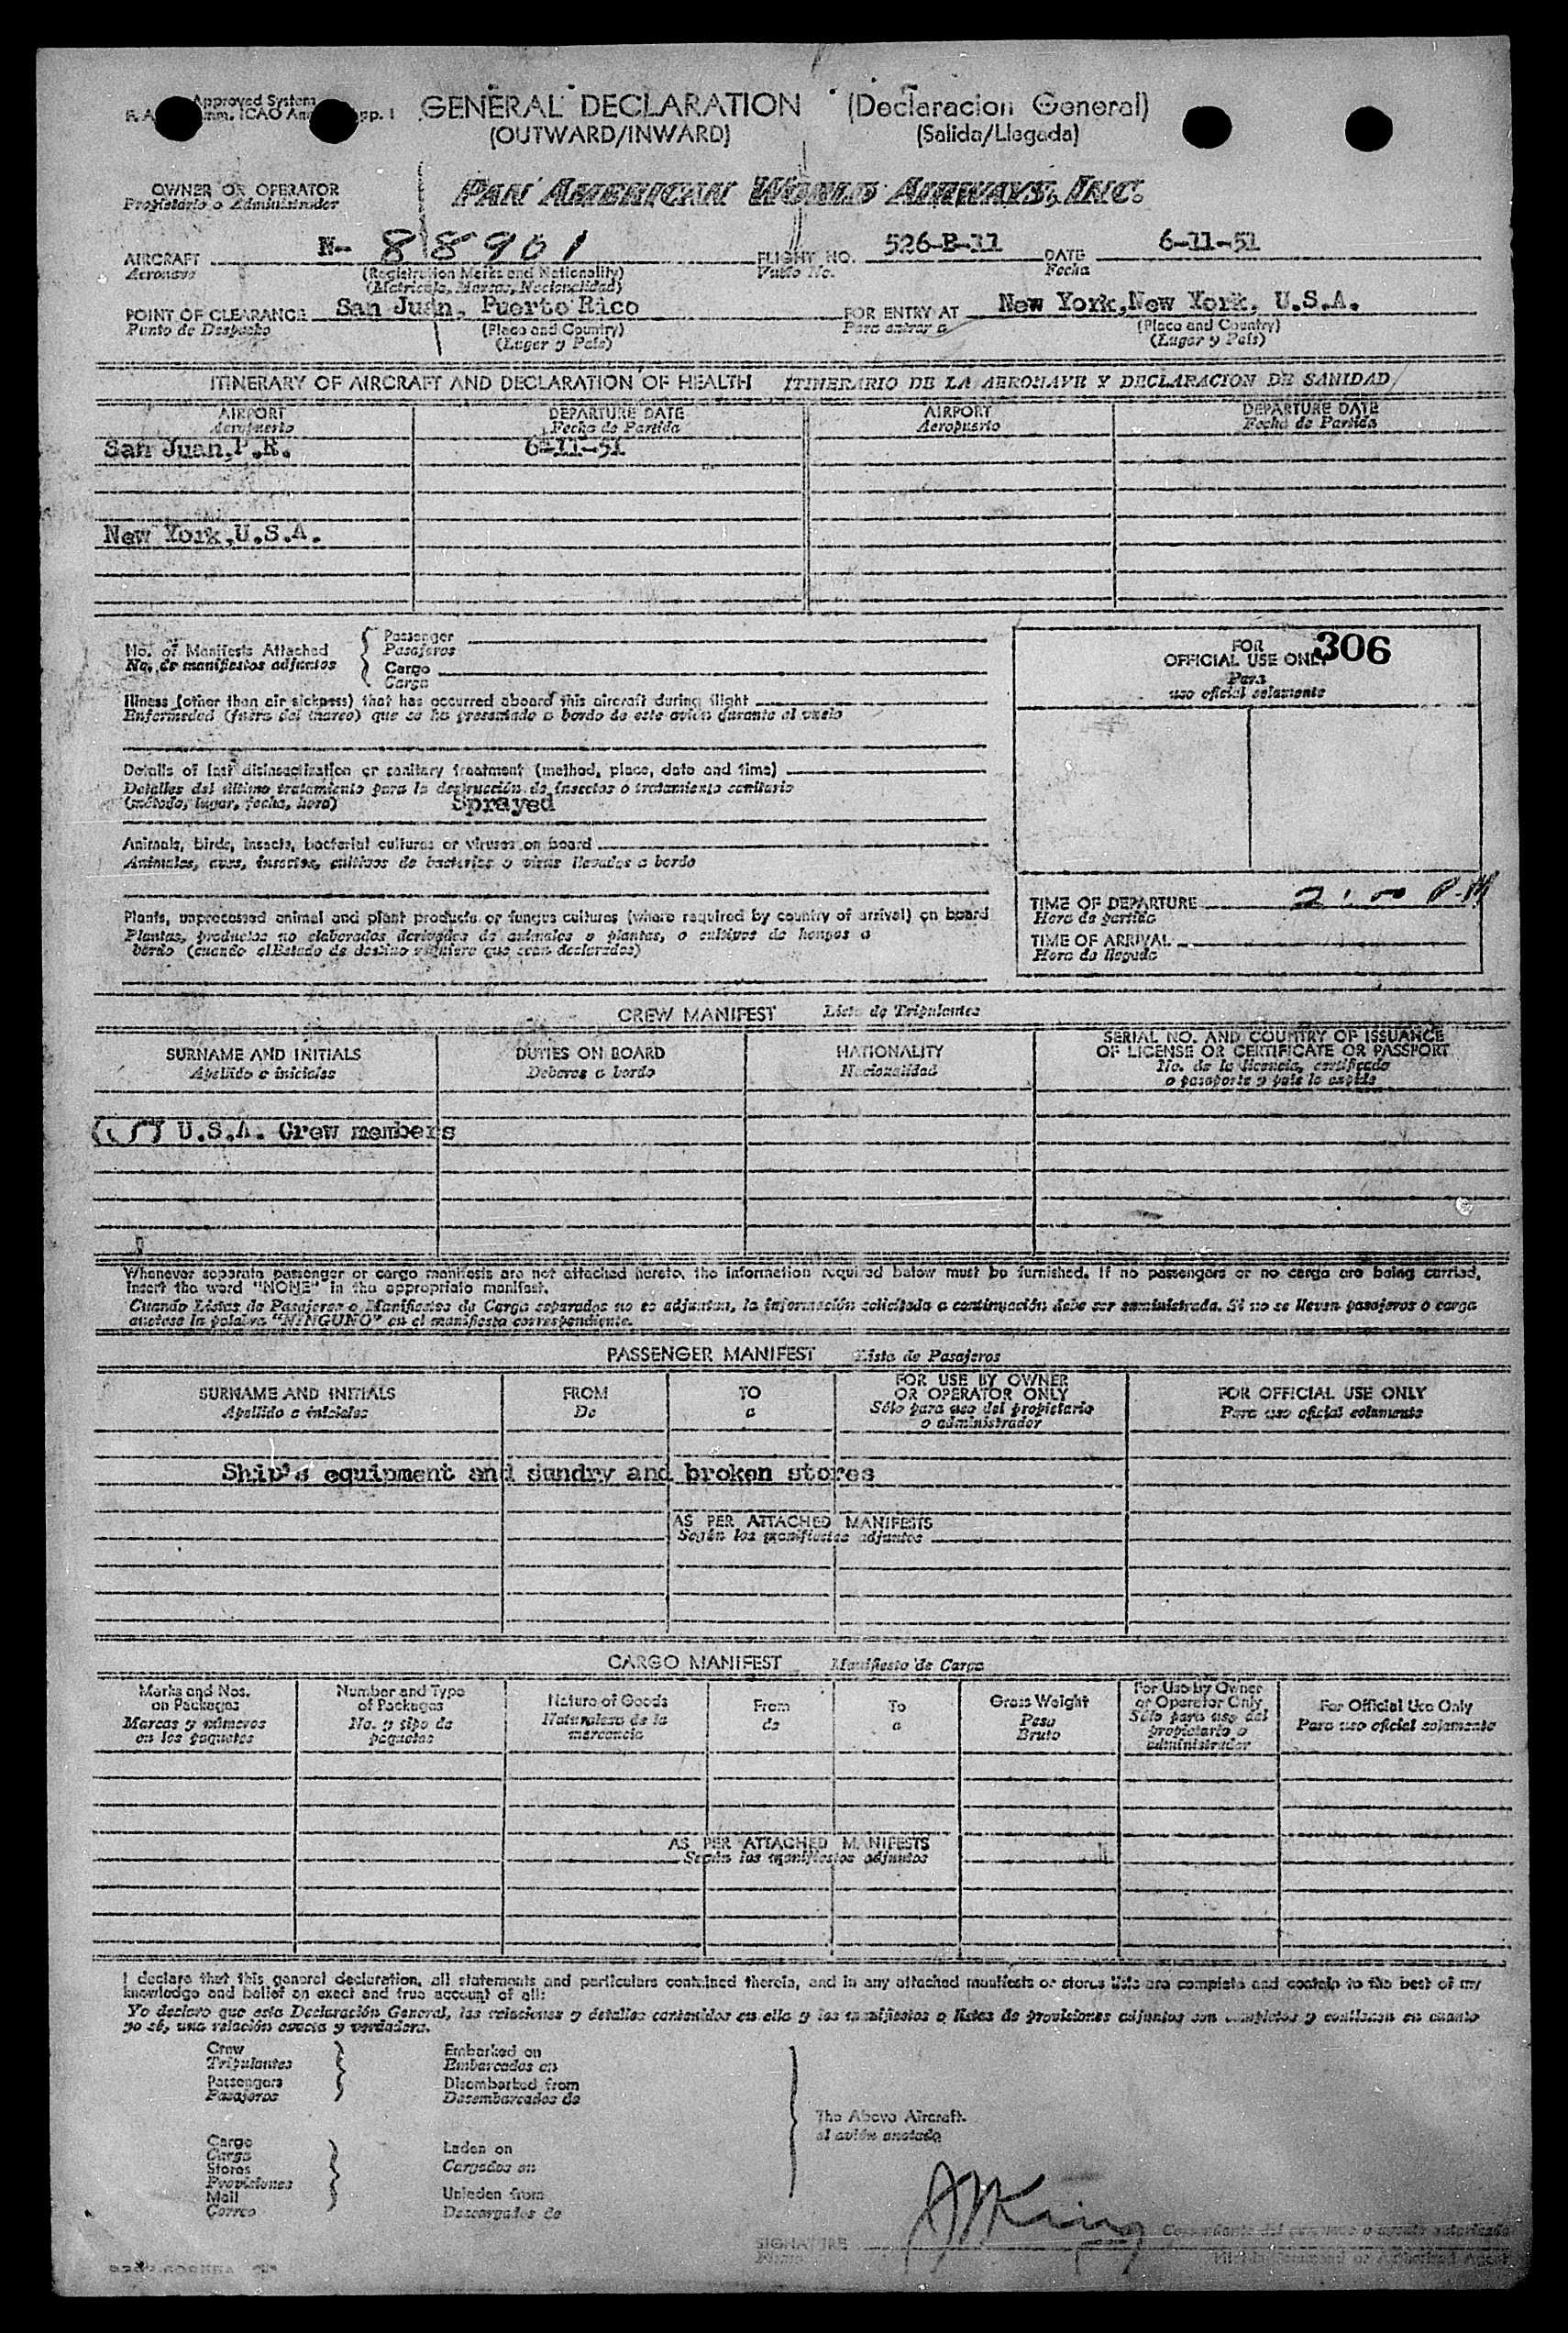 Approved System
GENERAL DECLARATION (Declaracion General)
(OUTWARD/INWARD) (Salida/Llegada)
OWNER OR OPERATOR PAN AMERICAN WORLD AIRWAYS, INC.
Propietario o Administrador
AIRCRAFT N- 88901 FLIGHT NO. 526-B-11 DATE 6-11-51
Aeronave (Registration Marks and Nationality) Vuelo No. Fecha
(Matricula, Marcas, Nacionalidad)
POINT OF CLEARANCE San Juan, Puerto Rico FOR ENTRY AT New York,New York, U.S.A.
Punto de Despacho (Place and Country) Para entrar a (Place and Country)
(Lugar y País) (Lugar y País)
ITINERARY OF AIRCRAFT AND DECLARATION OF HEALTH ITINERARIO DE LA AERONAVE Y DECLARACION DE SANIDAD
AIRPORT DEPARTURE DATE AIRPORT DEPARTURE DATE
Aeropuerto Fecha de Partida Aeropuerto Fecha de Partida
San Juan,P.R. 6-11-51
New York,U.S.A.
No. of Manifests Attached { Passenger
No. de manifiestos adjuntos Pasajeros
Cargo
Carga
FOR 306
OFFICIAL USE ONLY
Para
uso oficial solamente
Illness (other than air sickness) that has occurred aboard this aircraft during flight
Enfermedad (fuera del mareo) que se ha presentado a bordo de este avión durante el vuelo
Details of last disinsectization or sanitary treatment (method, place, date and time)
Detalles del último tratamiento para la destrucción de insectos ó tratamiento sanitario
(método, lugar, fecha, hora) Sprayed
Animals, birds, insects, bacterial cultures or viruses on board
Animales, aves, insectos, cultivos de bacterias o virus llevados a bordo
Plants, unprocessed animal and plant products or fungus cultures (where required by country of arrival) on board
Plantas, productos no elaborados derivados de animales o plantas, o cultivos de hongos a
bordo (cuando el Estado de destino requiere que sean declarados)
TIME OF DEPARTURE 2:00 P.M
Hora de partida
TIME OF ARRIVAL
Hora de llegada
CREW MANIFEST Lista de Tripulantes
SURNAME AND INITIALS DUTIES ON BOARD NATIONALITY SERIAL NO. AND COUNTRY OF ISSUANCE
OF LICENSE OR CERTIFICATE OR PASSPORT
Apellido e iniciales Deberes a bordo Nacionalidad No. de la licencia, certificado
o pasaporte y país lo expide
(5) U.S.A. Crew members
Whenever separate passenger or cargo manifests are not attached hereto, the information required below must be furnished. If no passengers or no cargo are being carried,
insert the word "NONE" in the appropriate manifest.
Cuando Listas de Pasajeros o Manifiestos de Carga separados no se adjuntan, la información solicitada a continuación debe ser suministrada. Si no se llevan pasajeros o carga
anotese la palabra "NINGUNO" en el manifiesto correspondiente.
PASSENGER MANIFEST Lista de Pasajeros
SURNAME AND INITIALS FROM TO FOR USE BY OWNER OR OPERATOR ONLY FOR OFFICIAL USE ONLY
Apellido e iniciales De a Sólo para uso del propietario o administrador Para uso oficial solamente
Ship's equipment and sundry and broken stores
AS PER ATTACHED MANIFESTS
Según los manifiestos adjuntos
CARGO MANIFEST Manifiesto de Carga
Marks and Nos. on Packages Number and Type of Packages Nature of Goods From To Gross Weight For Use by Owner or Operator Only For Official Use Only
Marcas y números en los paquetes No. y tipo de paquetes Naturaleza de la mercancía de a Peso Bruto Sólo para uso del propietario o administrador Para uso oficial solamente
AS PER ATTACHED MANIFESTS
Según los manifiestos adjuntos
I declare that this general declaration, all statements and particulars contained therein, and in any attached manifests or stores lists are complete and contain to the best of my
knowledge and belief an exact and true account of all:
Yo declaro que esta Declaración General, las relaciones y detalles contenidos en ella y los manifiestos o listas de provisiones adjuntos son completos y contienen en cuanto
yo sé, una relación exacta y verdadera.
Crew Embarked on
Tripulantes Embarcados en
Passengers Disembarked from
Pasajeros Desembarcados de
The Above Aircraft.
al avión anotado
Cargo Laden on
Carga
Stores Cargados en
Provisiones
Mail Unladen from
Correo Descargados de
SIGNATURE King
Comandante del aeronave o agente autorizado